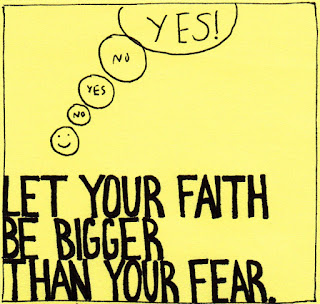 YES!
NO
YES
NO
LET YOUR FAITH
BE BIGGER
THAN YOUR FEAR.